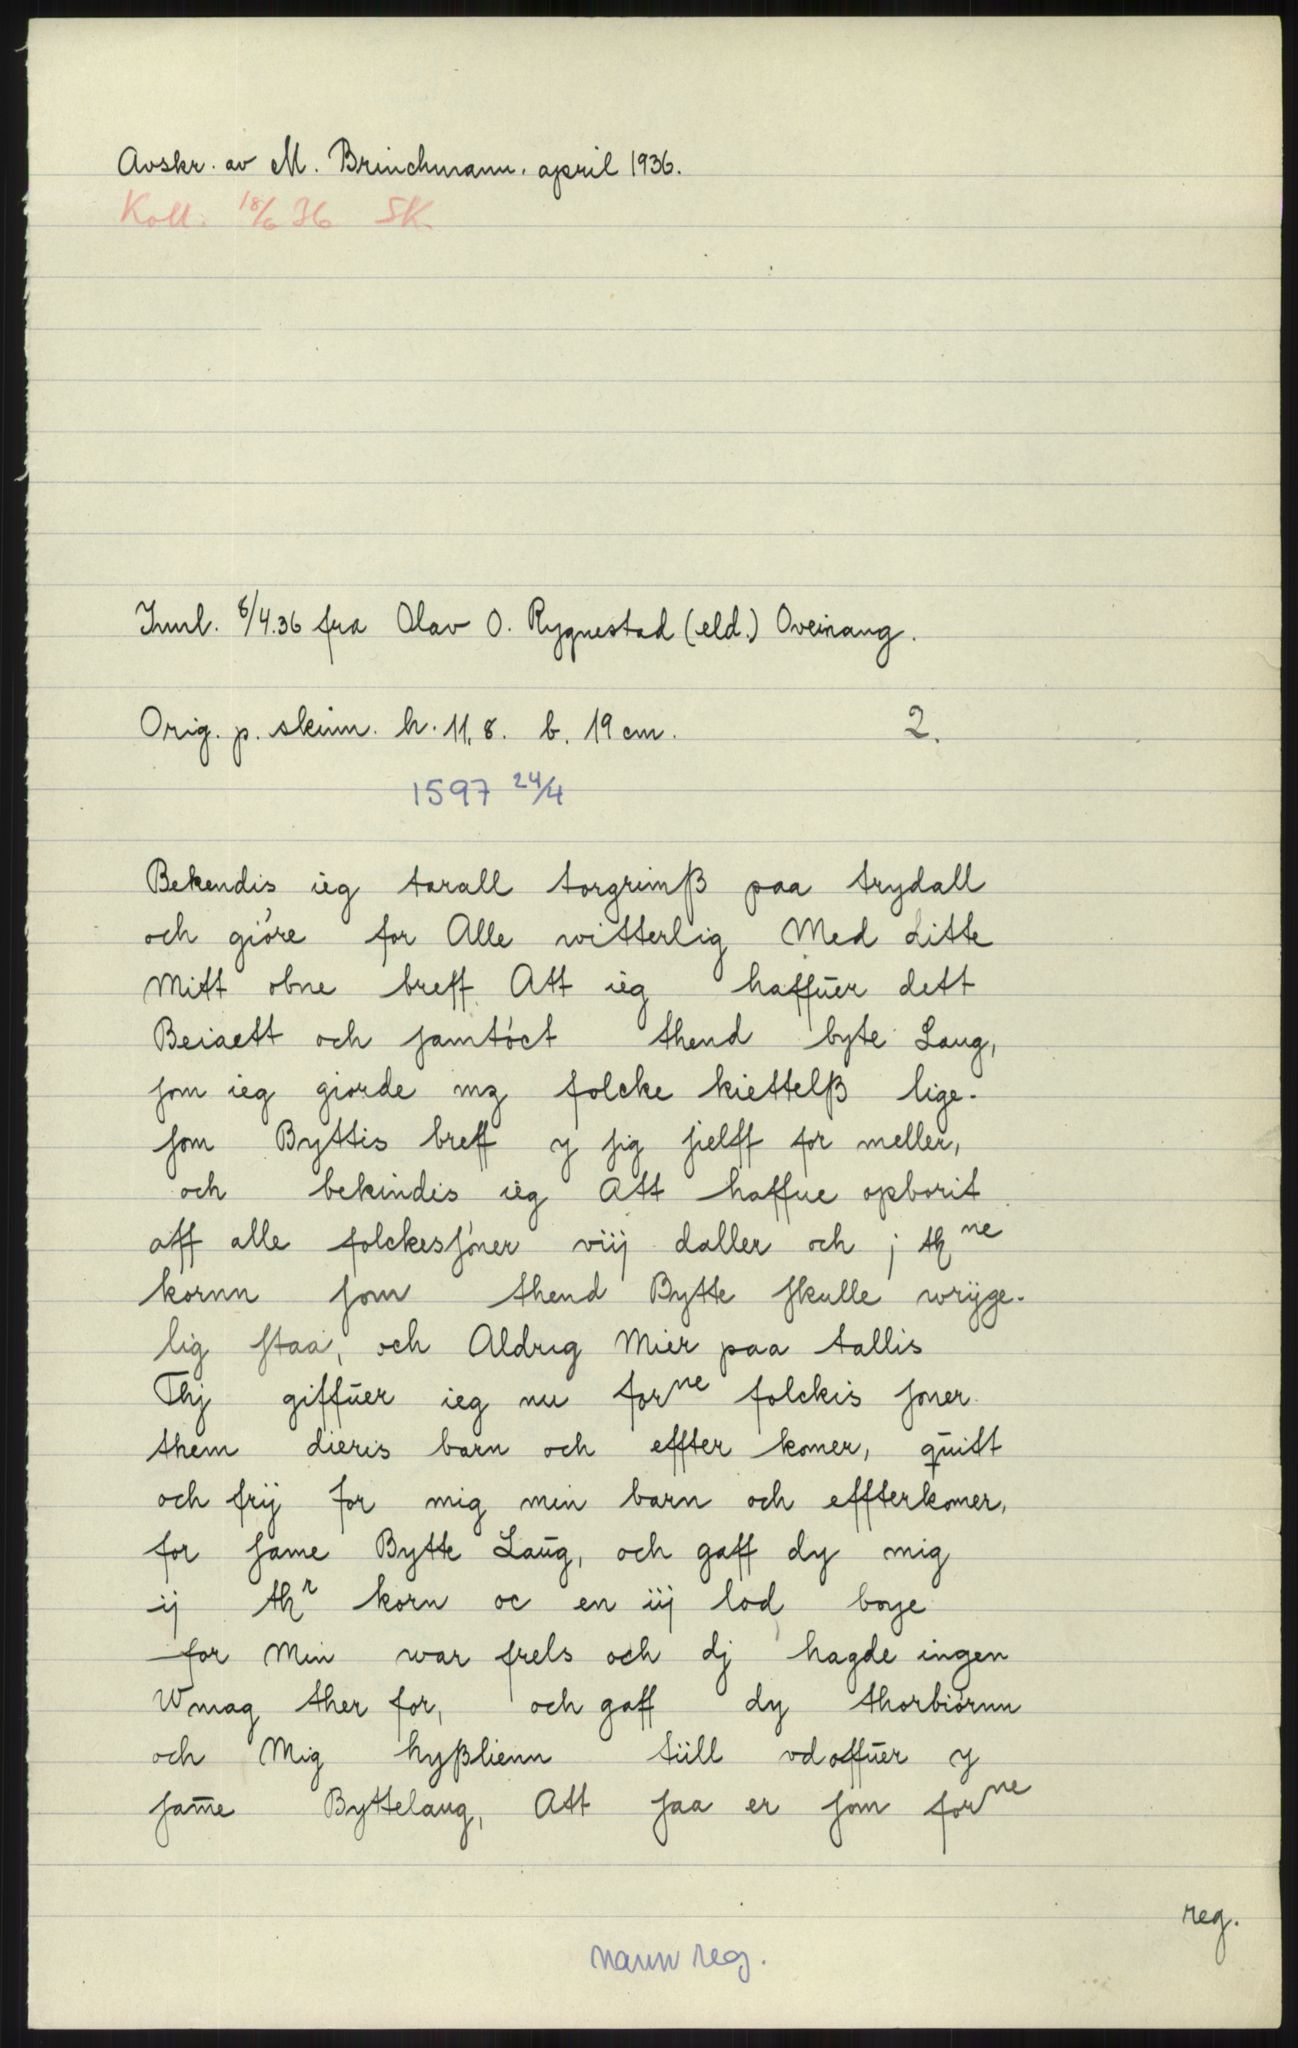 Avskr. av M. Brinchmann. april 1936.
Koll. 18/6 36 SK.
Innl. 8/4.36 fra Olav O. Rygnestad (eld.) Oveinang.
Orig. p. skinn. h. 11,8. b. 19 cm. 2.
1597 24/4
Bekendis ieg tarall torgrimß paa trydall
och gióre for Alle witterlig Med Ditte
Mitt obne breff. Att ieg haffūer dett
Beiaett och ſamtóct thend byte Laug,
ſom ieg giorde mꝫ folcke kiettelß lige-
ſom Byttis breff y ſig ſielff for meller,
och bekindis ieg Att haffue opborit
aff alle folckesſóner viij daller och j tħ ne
kornn ſom thend Bytte ſkulle wryge-
lig ſtaa, och Aldrig Mier paa tallis
Thj giffūer ieg nu for ne folckis ſoner
them dieris barn och effter komer, qūitt
och frij for mig min barn och effterkomer,
for ſame Bytte Laūg, och gaff dy mig
ij tħ r korn oc en iij lod boye
for Min war frels och dj hagde ingen
Wmag ther for, och gaff dy thorbiórnn
och Mig hyßlienn tiill vdoffūer y
ſam̄e Byttelaug, Att ſaa er ſom for ne
reg.
navnreg.